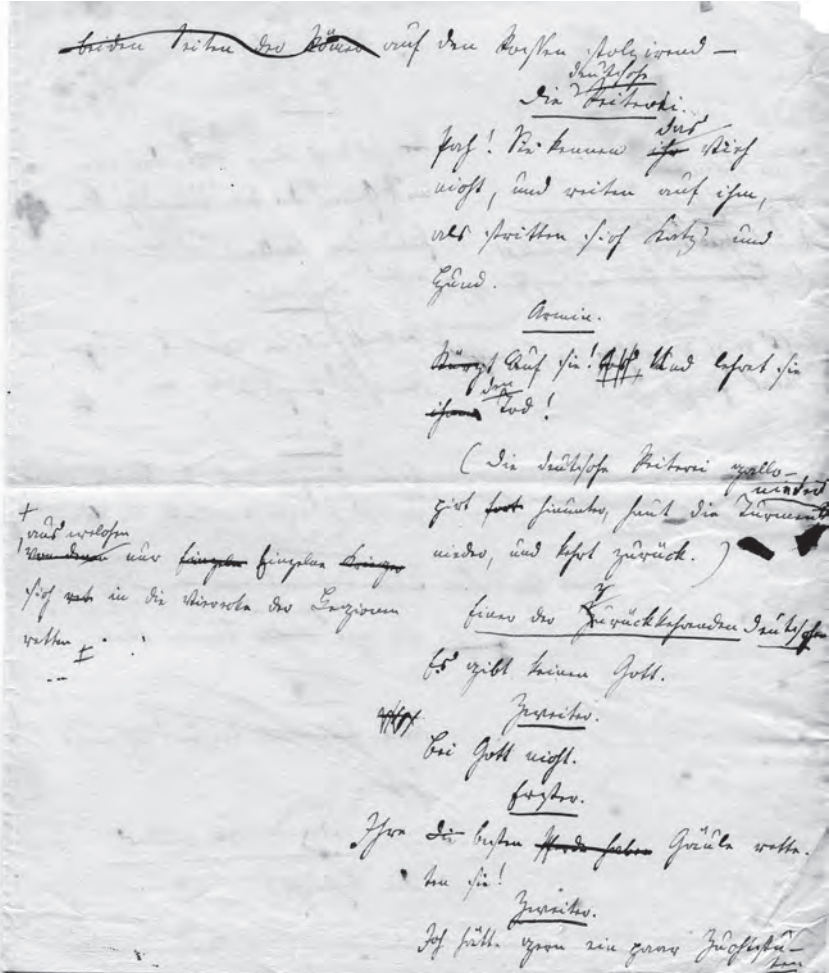 beiden Seiten der Römer auf den Rossen stolzirend —
deutsche
Die Reiterei.
das
Pah! Sie kennen ihr Vieh
nicht, und reiten auf ihm,
als stritten sich Katz' und
Hund.
Armin.
Auf sie! Und lehret sie
den
Tod!
(Die deutsche Reiterei gallo-
pirt fort hinunter, haut die Turmen
nieder, und kehrt zurück.)
+
aus welchen
von denen nur Einzeln Einzelne Krieger
sich ret in die Vierecke der Legionen
retten +
Einer der Zurückkehrenden Deutschen
Es gibt keinen Gott.
Zweiter.
Bei Gott nicht.
Erster.
Ihre die besten Pferde haben Gäule rette-
ten sie!
Zweiter.
Ich hätte gern ein paar Zuchtstu-
ten